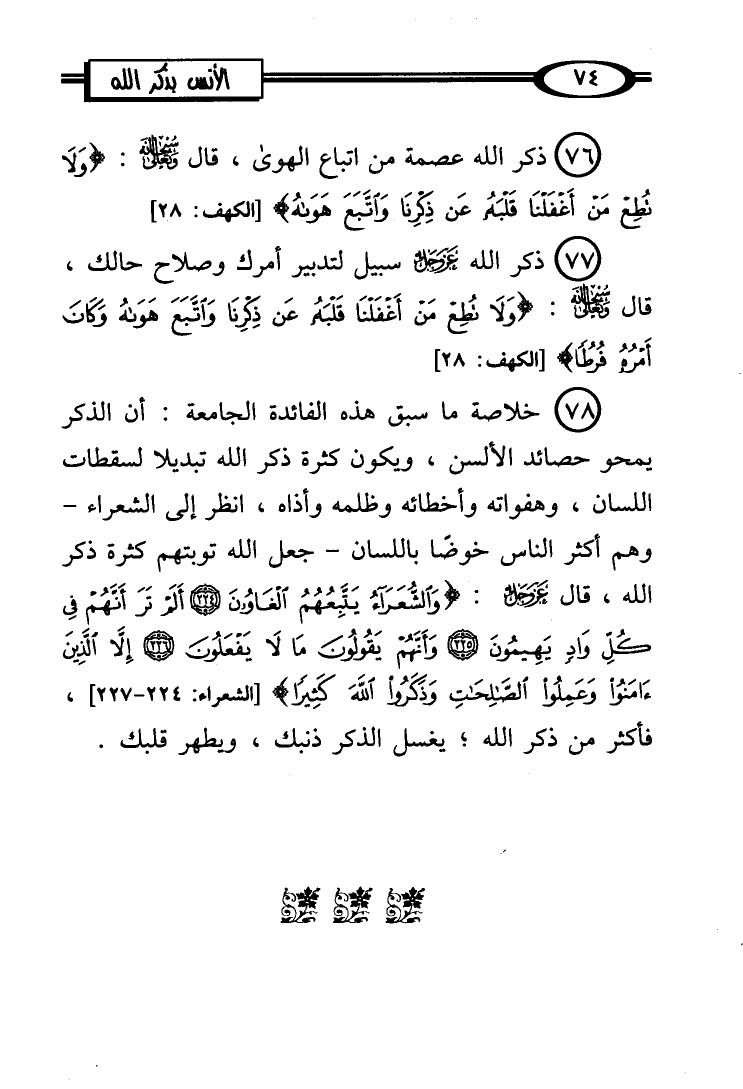 ٧٤ الأنس بذكر الله
٧٦ ذكر الله عصمة من اتباع الهوىٰ ، قال سُبْحَانَهُ وَتَعَالَى : ﴿وَلَا
نُطِعۡ مَنۡ أَغۡفَلۡنَا قَلۡبَهُۥ عَن ذِكۡرِنَا وَٱتَّبَعَ هَوَىٰهُ﴾ [الكهف: ٢٨]
٧٧ ذكر الله عَزَّوَجَلَّ سبيل لتدبير أمرك وصلاح حالك ،
قال سُبْحَانَهُ وَتَعَالَى : ﴿وَلَا نُطِعۡ مَنۡ أَغۡفَلۡنَا قَلۡبَهُۥ عَن ذِكۡرِنَا وَٱتَّبَعَ هَوَىٰهُ وَكَانَ
أَمۡرُهُۥ فُرُطٗا﴾ [الكهف: ٢٨]
٧٨ خلاصة ما سبق هذه الفائدة الجامعة : أن الذكر
يمحو حصائد الألسن ، ويكون كثرة ذكر الله تبديلا لسقطات
اللسان ، وهفواته وأخطائه وظلمه وأذاه ، انظر إلى الشعراء –
وهم أكثر الناس خوضًا باللسان – جعل الله توبتهم كثرة ذكر
الله ، قال عَزَّوَجَلَّ : ﴿وَٱلشُّعَرَآءُ يَتَّبِعُهُمُ ٱلۡغَاوُۥنَ ٢٢٤ أَلَمۡ تَرَ أَنَّهُمۡ فِي
كُلِّ وَادٖ يَهِيمُونَ ٢٢٥ وَأَنَّهُمۡ يَقُولُونَ مَا لَا يَفۡعَلُونَ ٢٢٦ إِلَّا ٱلَّذِينَ
ءَامَنُواْ وَعَمِلُواْ ٱلصَّٰلِحَٰتِ وَذَكَرُواْ ٱللَّهَ كَثِيرٗا﴾ [الشعراء: ٢٢٤-٢٢٧] ،
فأكثر من ذكر الله ؛ يغسل الذكر ذنبك ، ويطهر قلبك .